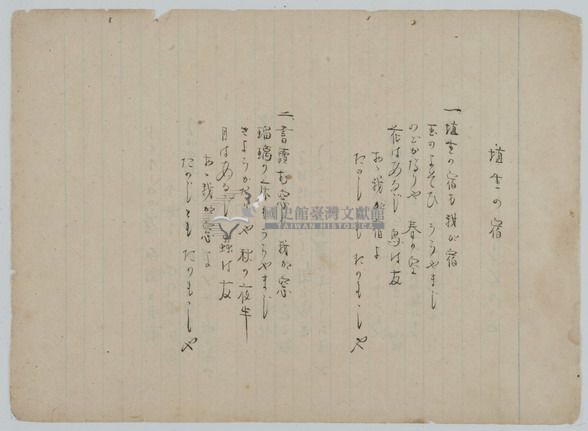 埴生の宿
一、埴生の宿も我が宿
玉のよそひうらやまじ
のどかなりや 春の空
花はあるじ 鳥は友
おゝ我が宿よ
たのしとも たのもしや
二、書讀む窓も 我が窓
瑠璃の床もうらやまじ
きよらかなりや 秋の夜半
月はあるじ 虫は友
おゝ我が窓よ
たのしとも たのもしや
國史館臺灣文獻館
TAIWAN HISTORICA